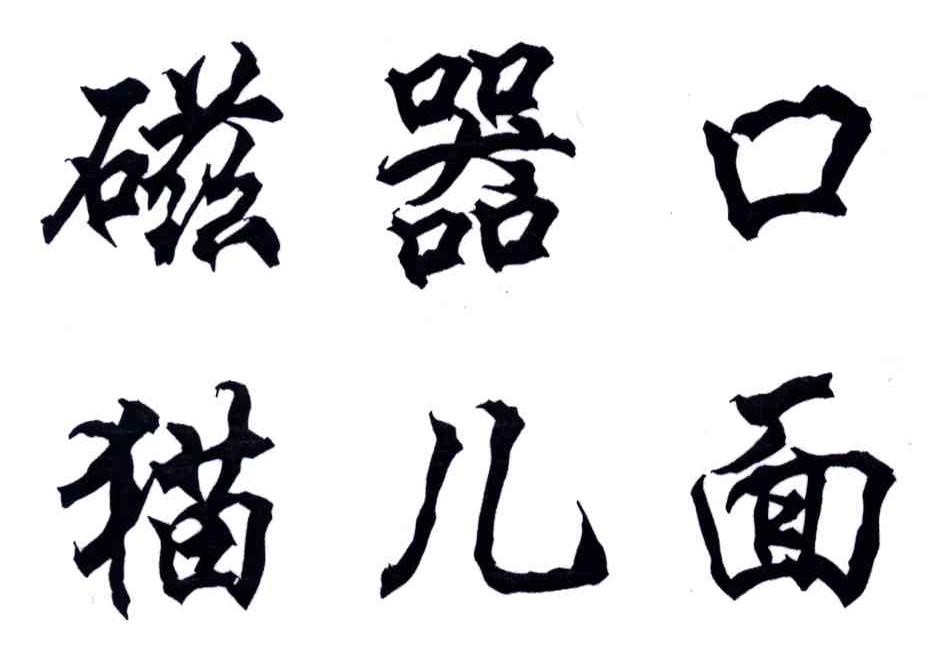 磁器口
猫儿面